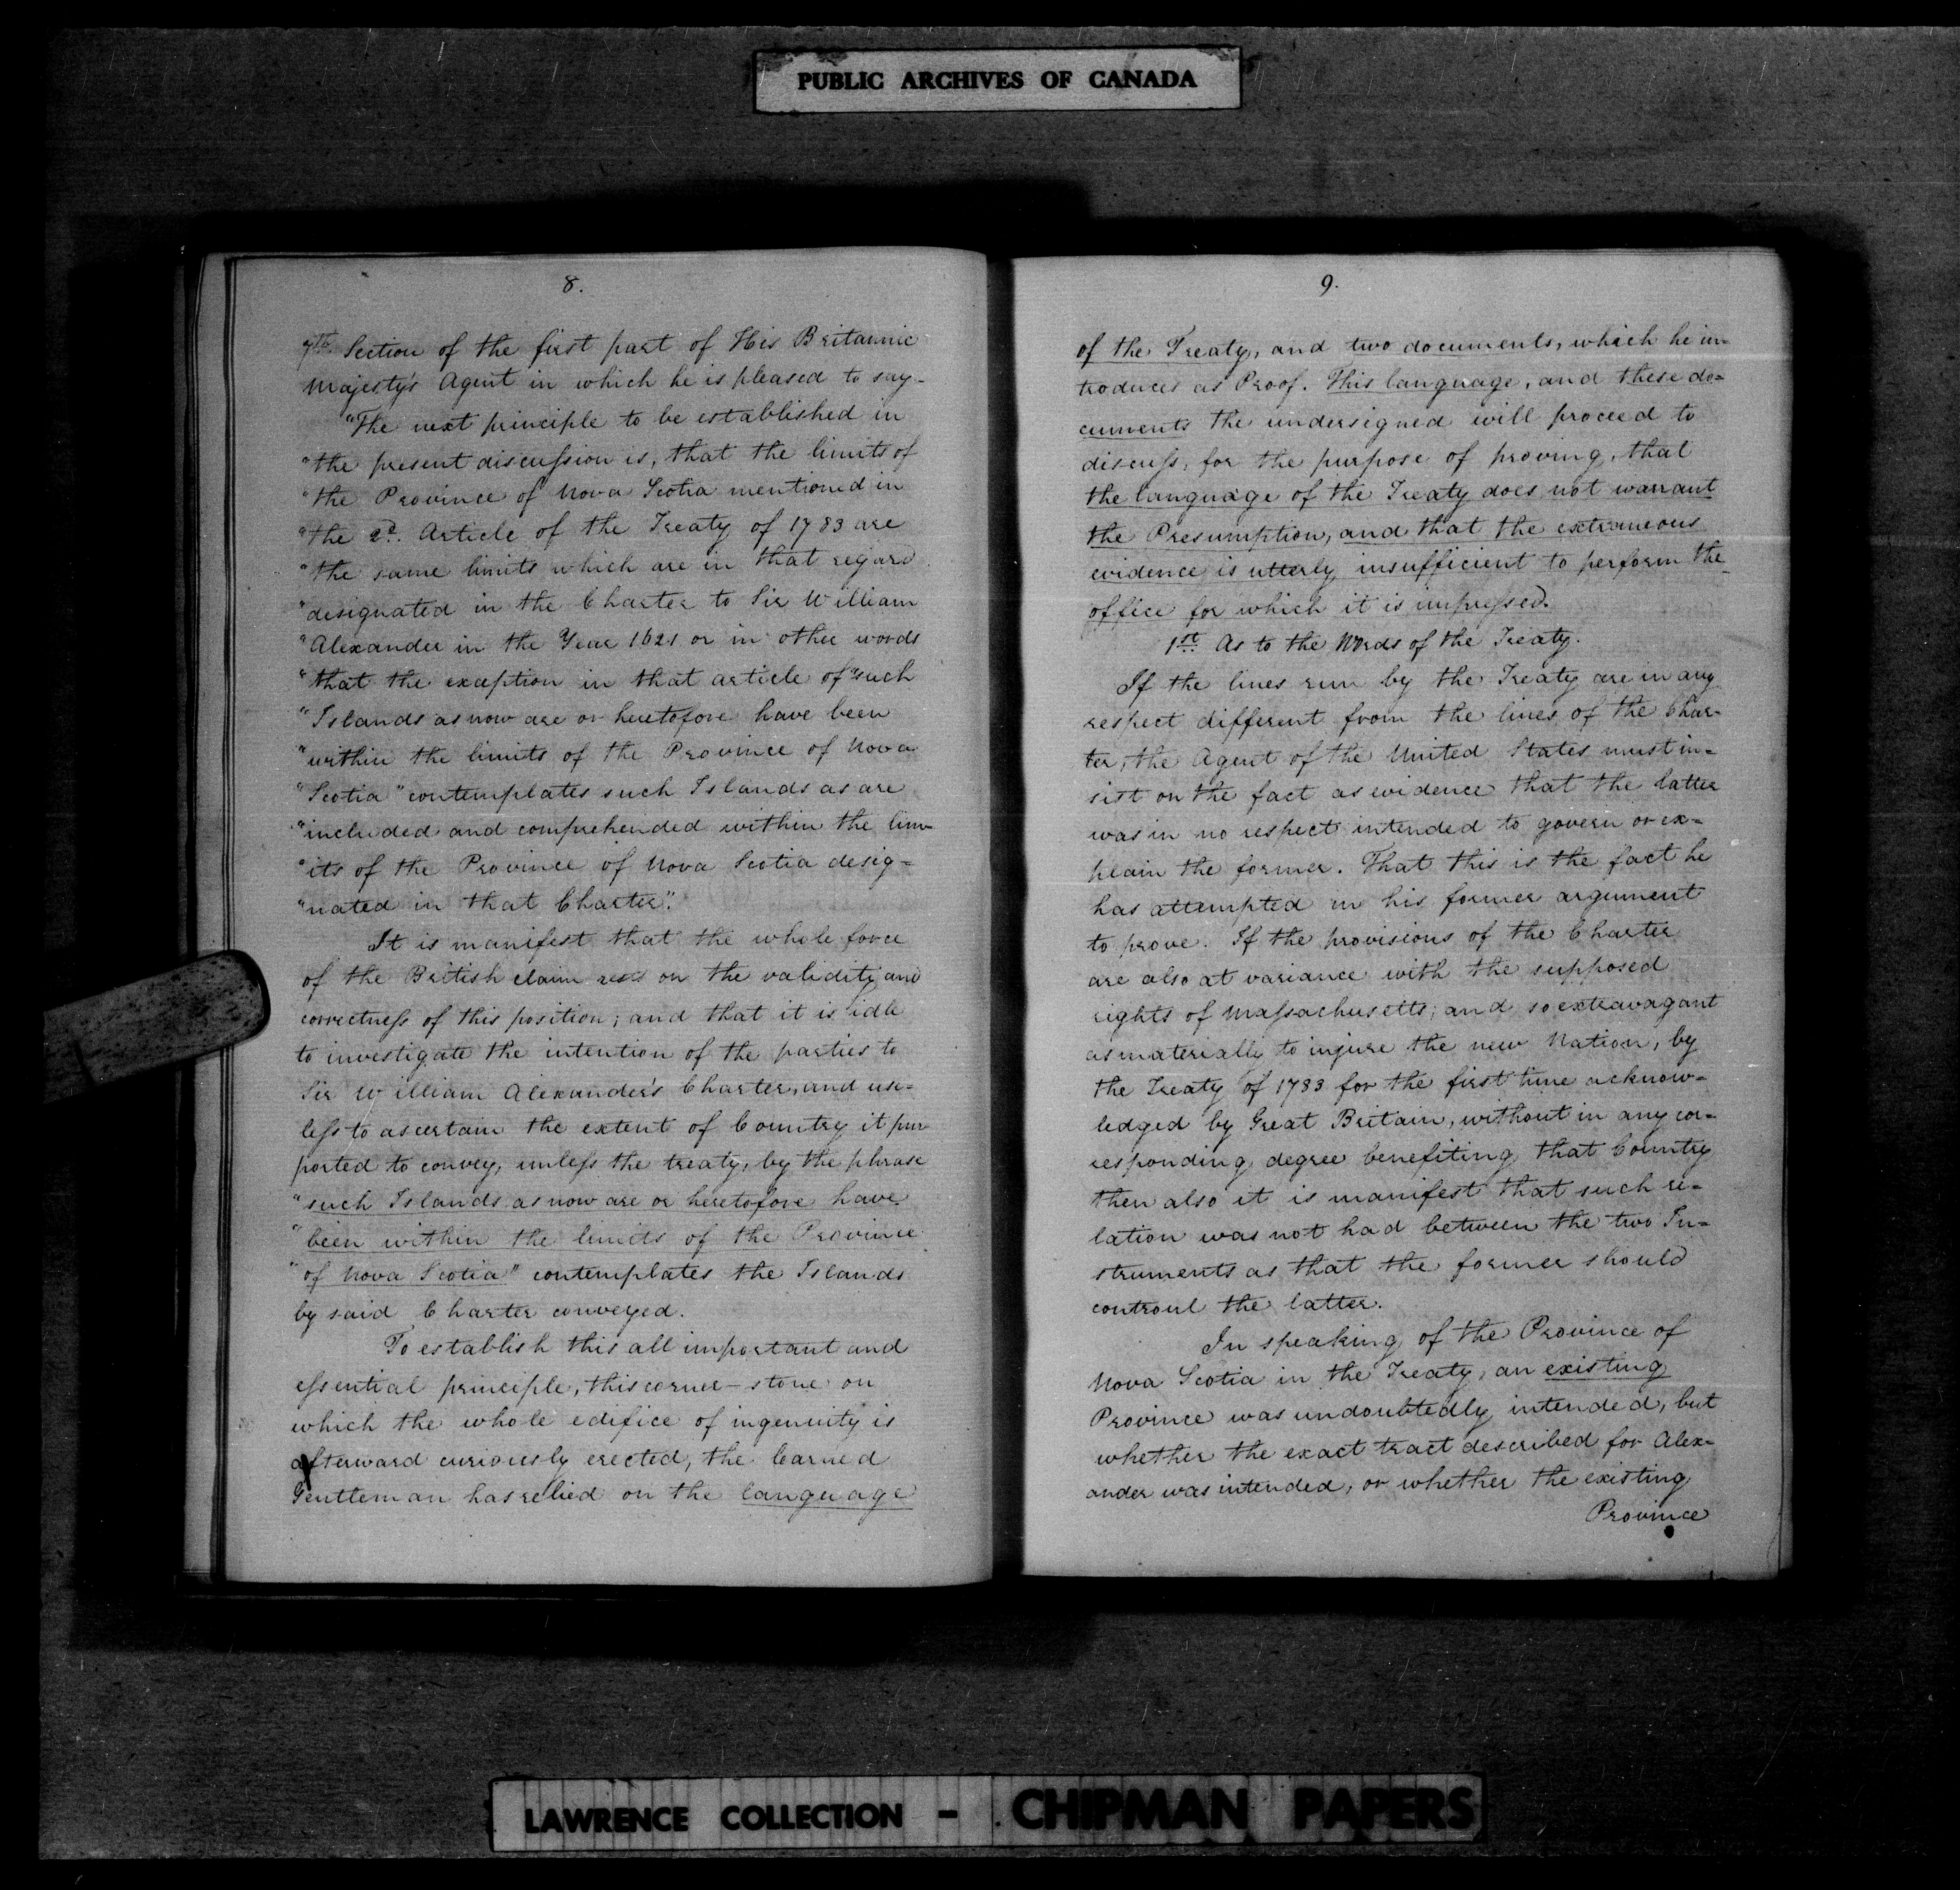 PUBLIC ARCHIVES OF CANADA
8.
7th. Section of the first part of His Britannic
Majesty's Agent in which he is pleased to say-
"The next principle to be established in
"the present discussion is, that the limits of
"the Province of Nova Scotia mentioned in
"the 2d. Article of the Treaty of 1783 are
"the same limits which are in that regard
"designated in the Charter to Sir William
"Alexander in the Year 1621 or in other words
"that the exception in that article of "such
"Islands as now are or heretofore have been
"within the limits of the Province of Nova
"Scotia" contemplates such Islands as are
"included and comprehended within the lim-
"its of the Province of Nova Scotia desig=
"nated in that Charter".
It is manifest that the whole force
of the British claim rests on the validity and
correctness of this position; and that it is idle
to investigate the intention of the parties to
Sir William Alexander's Charter, and use-
less to ascertain the extent of Country it pur
ported to convey, unless the treaty, by the phrase
"such Islands as now are or heretofore have
"been within the limits of the Province
"of Nova Scotia" contemplates the Islands
by said Charter conveyed.
To establish this all important and
essential principle, this corner-stone on
which the whole edifice of ingenuity is
afterward curiously erected, the learned
Gentleman has relied on the language
9.
of the Treaty, and two documents, which he in=
troduces as Proof. This language, and these do=
cuments the undersigned will proceed to
discuss, for the purpose of proving, that
the language of the Treaty does not warrant
the Presumption, and that the extraneous
evidence is utterly insufficient to perform the
office for which it is impressed.
1st. As to the Words of the Treaty.
If the lines run by the Treaty are in any
respect different from the lines of the Char-
ter, the Agent of the United States must in=
sist on the fact as evidence that the latter
was in no respect intended to govern or ex=
plain the former. That this is the fact he
has attempted in his former argument
to prove. If the provisions of the Charter
are also at variance with the supposed
rights of Massachusetts; and so extravagant
as materially to injure the new Nation, by
the Treaty of 1783 for the first time acknow=
ledged by Great Britain, without in any cor=
responding degree benefiting that Country
then also it is manifest that such re=
lation was not had between the two In=
struments as that the former should
controul the latter.
In speaking of the Province of
Nova Scotia in the Treaty, an existing
Province was undoubtedly intended, but
whether the exact tract described for Alex-
ander was intended, or whether the existing
Province
LAWRENCE COLLECTION - CHIPMAN PAPERS